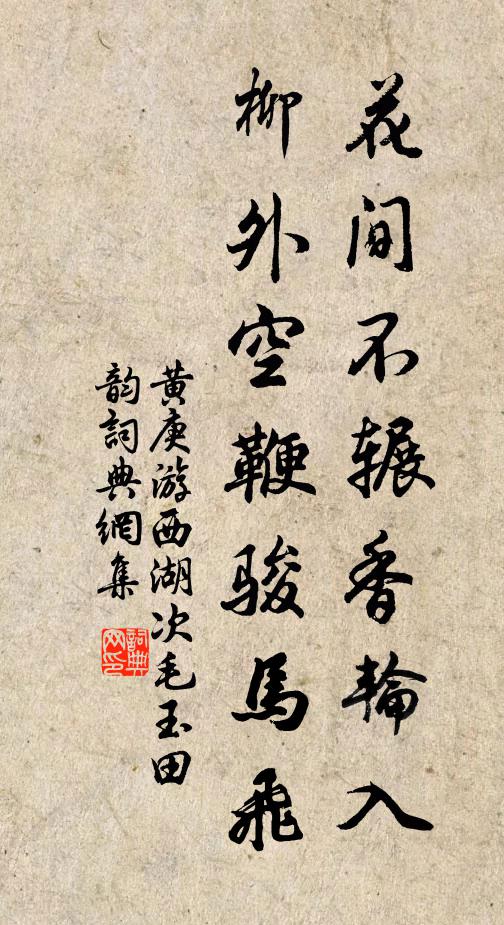 花间不辗香輪入
柳外空鞭骏馬飛
黄庚游西湖次毛玉田
韵詞典網集
詞典网印